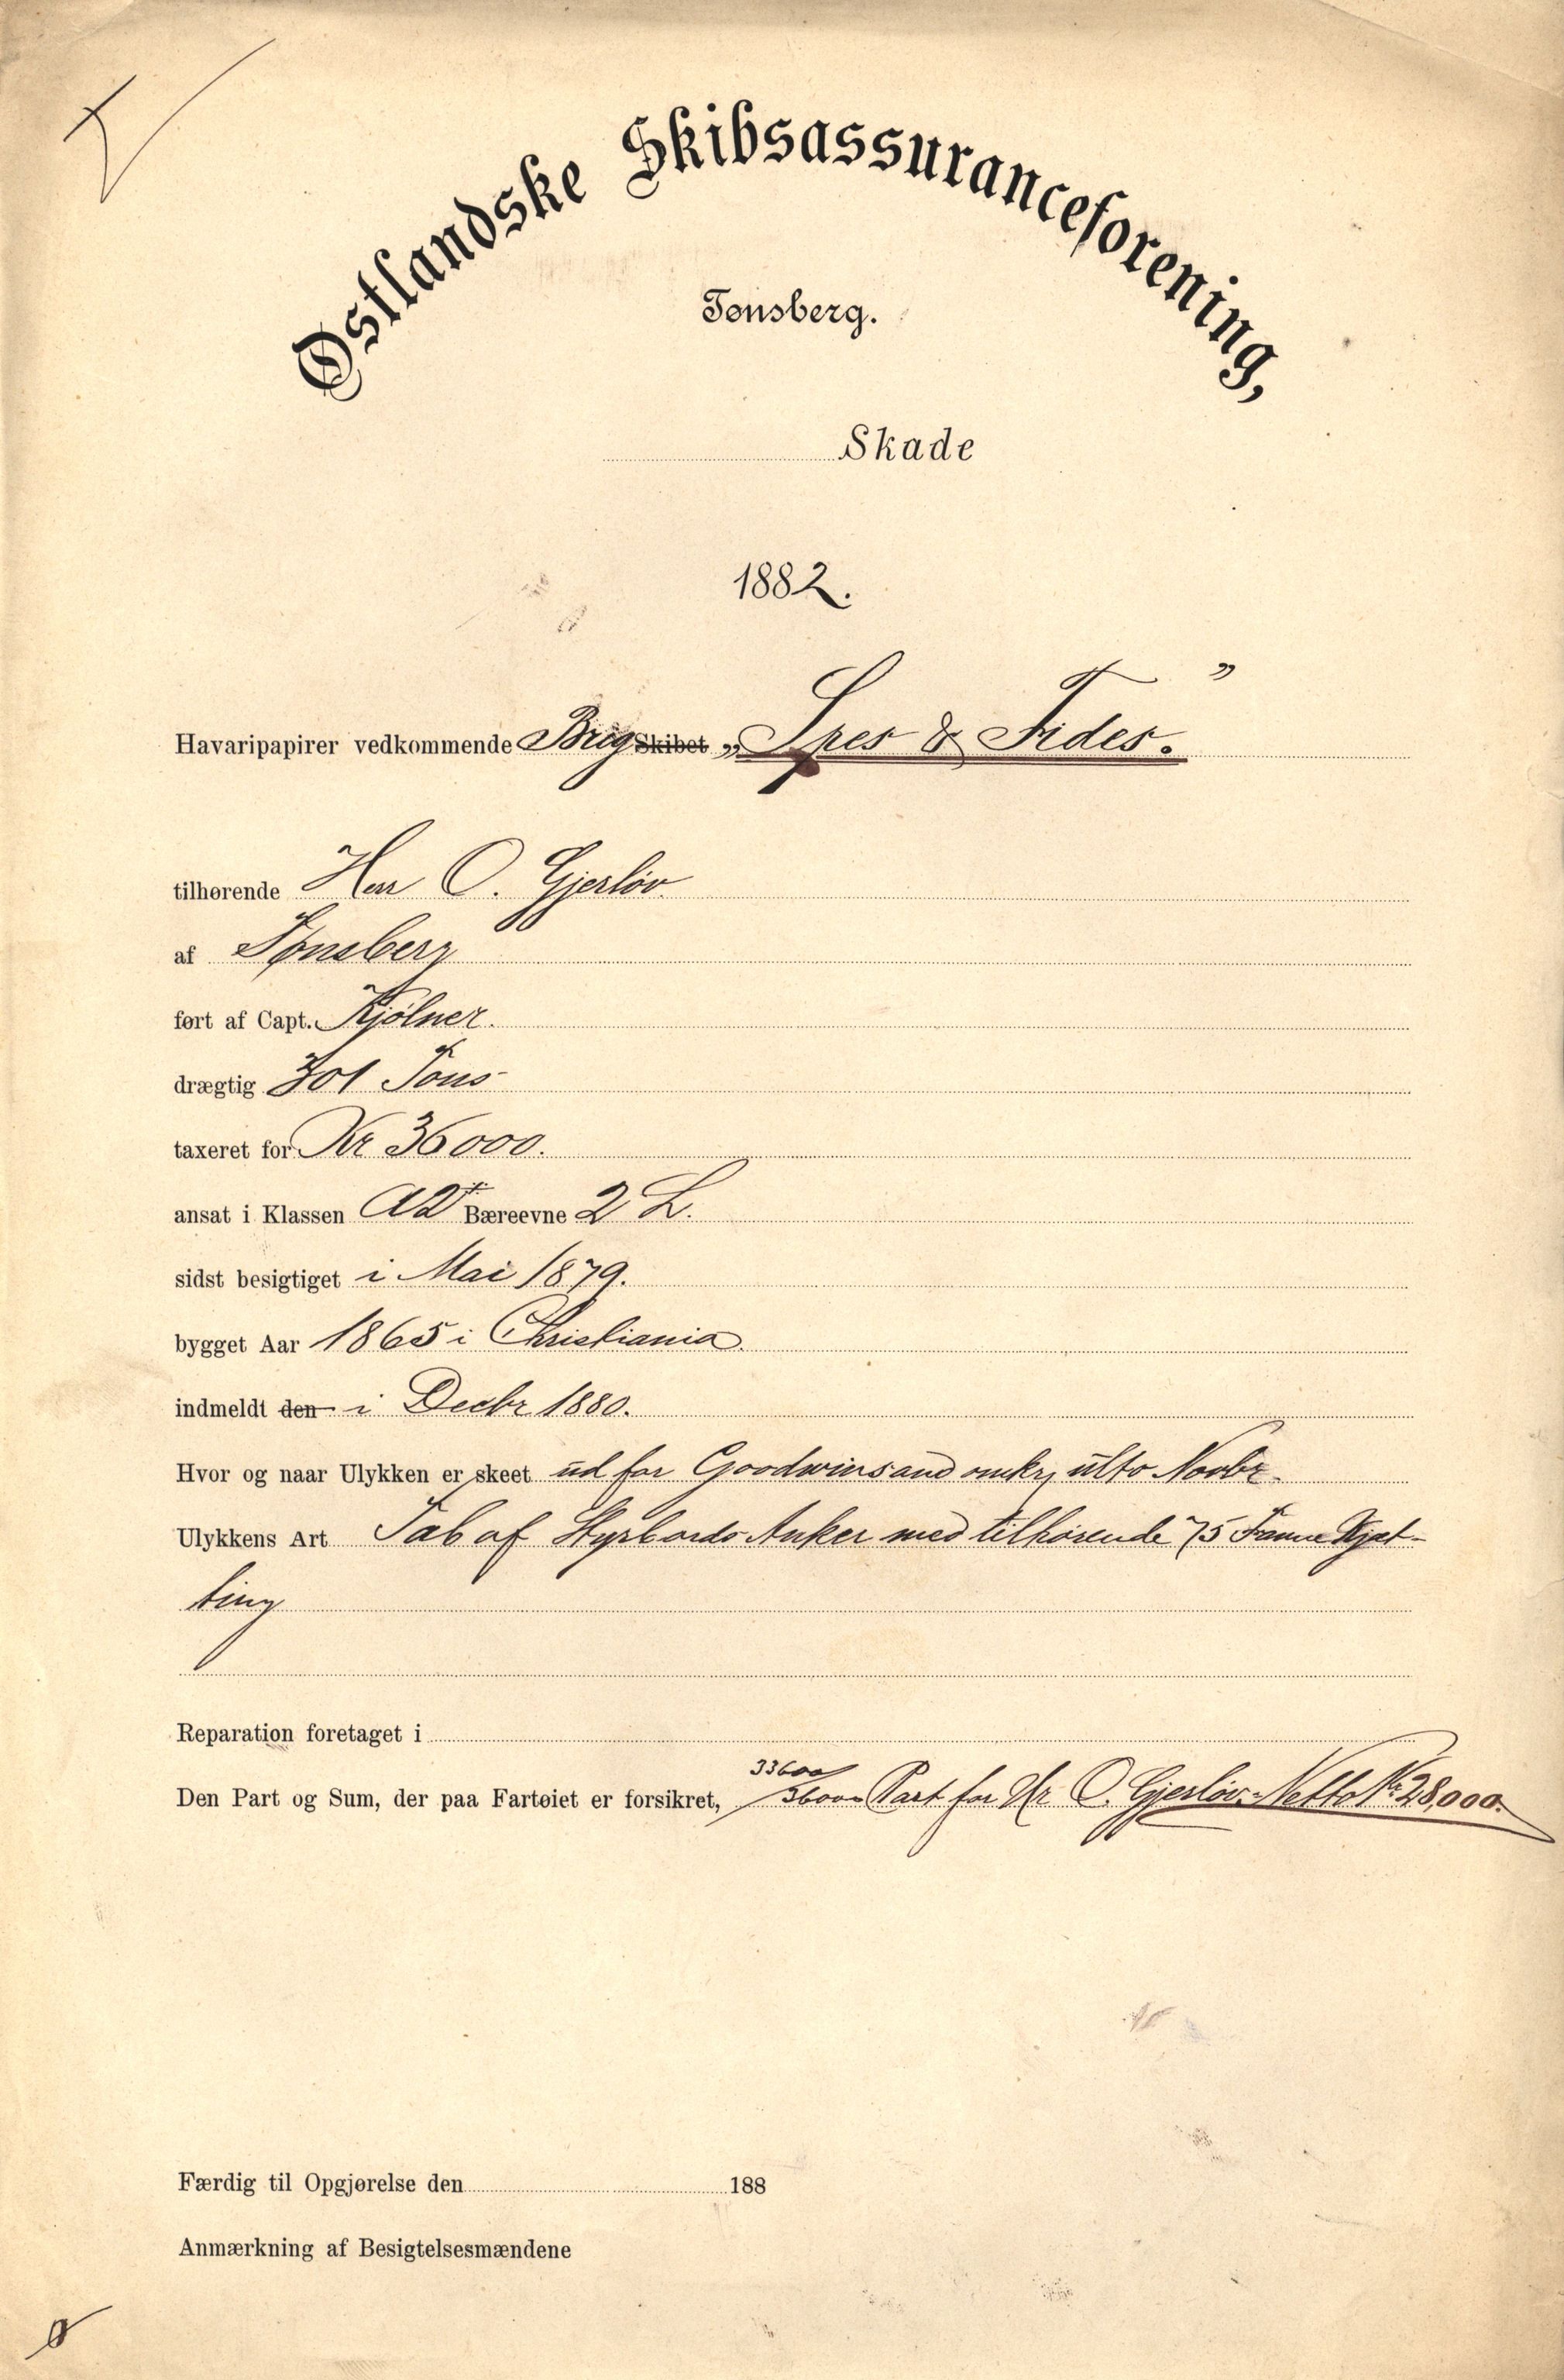 Østlandske Skibsassuranceforening,
Tønsberg.
Skade
1882.
Havaripapirer vedkommende Brig Skibet „Spes & Fides."
tilhørende Herr O. Gjerløv
af Tønsberg
ført af Capt. Kjölner.
drægtig 301 Tons
taxeret for Kr 36000.
ansat i Klassen A2† Bæreevne 2 L.
sidst besigtiget i Mai 1879.
bygget Aar 1865 i Christiania.
indmeldt den i Decbr 1880.
Hvor og naar Ulykken er skeet ud for Goodwinsand omkr ulto Novbr.
Ulykkens Art Tab af Styrbords Anker med tilhörende 75 Favne Kjæt-
ting
Reparation foretaget i
Den Part og Sum, der paa Fartøiet er forsikret, 33600/36000 Part for Hr O. Gjerløv. Netto Kr 28,000.
Færdig til Opgjørelse den 188
Anmærkning af Besigtelsesmændene